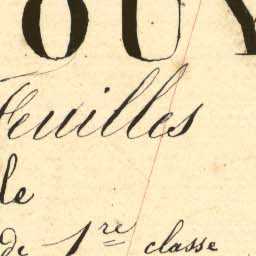 OUY
Feuilles
le
de 1re classe